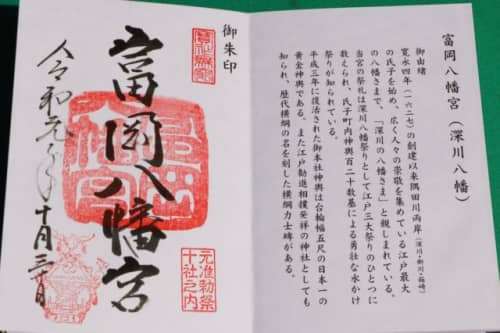 富岡八幡宮（深川八幡）
御由緒
寛永四年（一六二七）の創建以来隅田川両岸（深川・新川・箱崎）
の氏子を始め、広く人々の崇敬を集めている江戸最大
の八幡さまで、「深川の八幡さま」と親しまれている。
当宮の祭礼は深川八幡祭りとして江戸三大祭りのひとつに
数えられ、氏子町内神輿百二十数基による勇壮な水かけ
祭りが知られている。
平成三年に復活された御本社神輿は台輪幅五尺の日本一の
黄金神輿である。また江戸勧進相撲発祥の神社としても
知られ、歴代横綱の名を刻した横綱力士碑がある。
御朱印
元准勅祭
十社之内
富岡八幡宮
令和元年十月三十日